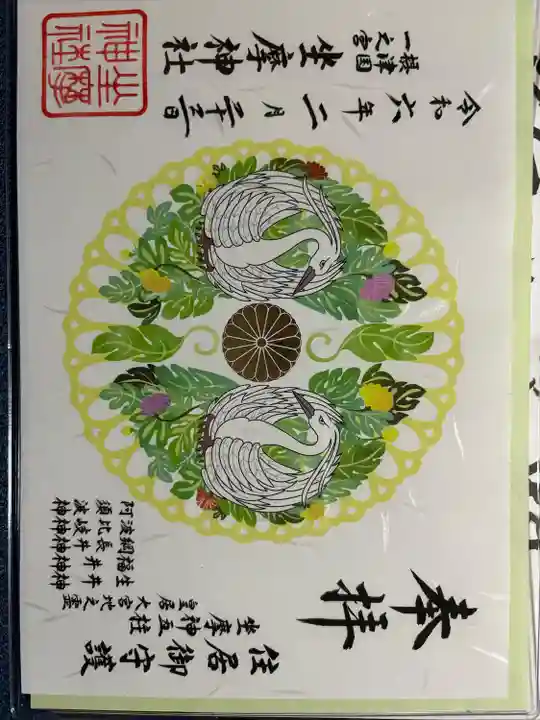 奉拝
住居御守護
坐摩神五柱
皇居大宮地之霊
生井神
福井神
綱長井神
波比岐神
阿須波神
令和六年二月二十三日
摂津国
一之宮
坐摩神社
坐摩
神社